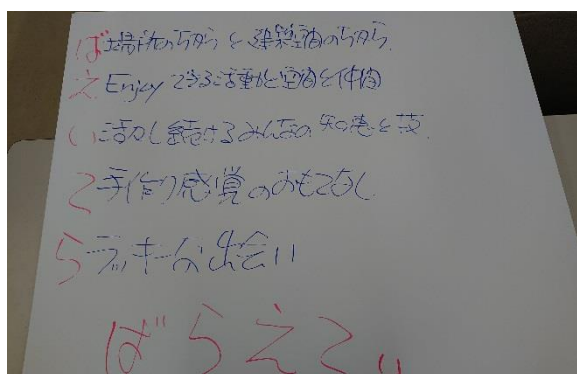 ば 場所のちからと建築空間のちから
え Enjoyできる活動と空間と仲間
い 活かし続けるみんなの知恵と技
て 手作り感覚のおもてなし
ら ラッキーな出会い
ばらえてぃ